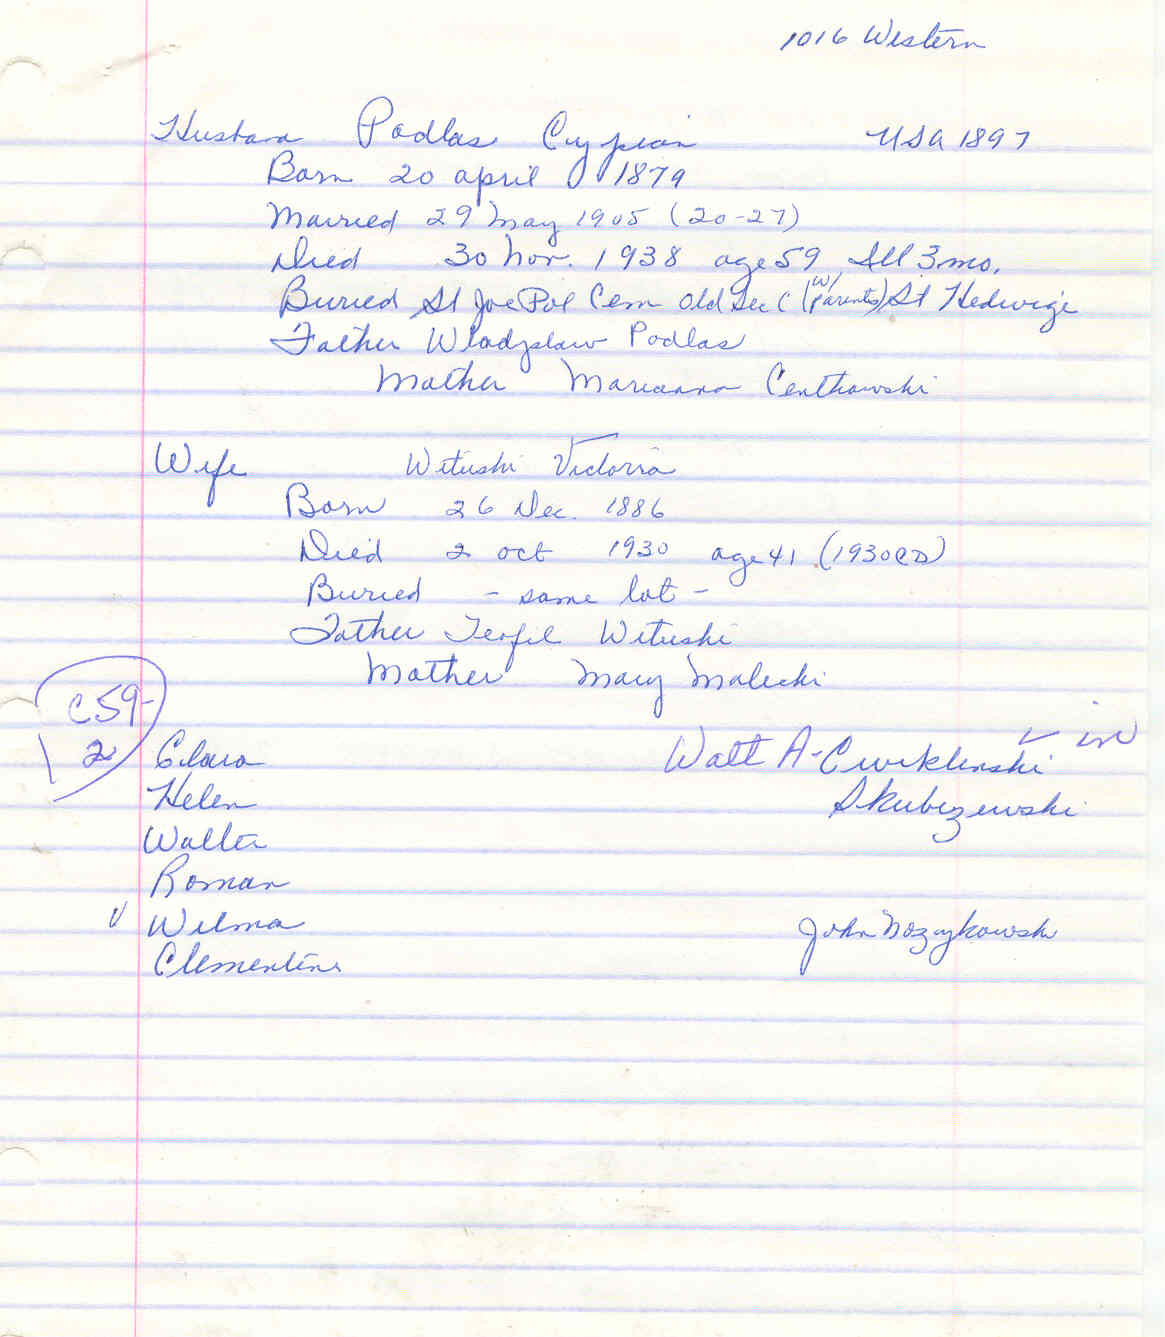 1016 Western
Husband Podlas Cyprian USA 1897
Born 20 april 1879
Married 29 May 1905 (20-27)
Died 30 Nov. 1938 age 59 Ill 3 mo.
Buried St Joe Pol Cem Old Sec (w/ parents) St Hedwige
Father Wladyslaw Podlas
Mother Marianna Centkowski
Wife Wituski Victoria
Born 26 Dec. 1886
Died 2 oct 1930 age 41 (1930CD)
Buried - same lot -
Father Teofil Wituski
Mother Mary Malecki
C59-
2
Clara Walt A-Cwiklinski
Helen Skubizewski
Walter
Roman
✓ Wilma John Nozykowski
Clementine